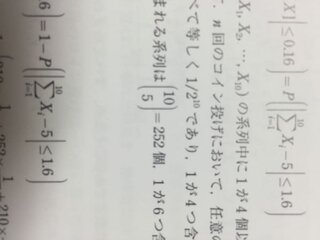 X]| ≤ 0.16) = P(|∑_{i=1}^{10} X_i − 5| ≤ 1.6)
X_1, X_2, …, X_{10}) の系列中に 1 が 4 個以
n 回のコイン投げにおいて, 任意の
べて等しく 1/2^{10} であり, 1 が 4 つ含
まれる系列は \binom{10}{5} = 252 個, 1 が 6 つ含
.6) = 1 − P(|∑_{i=1}^{10} X_i − 5| ≤ 1.6)
+ 252× + 210×